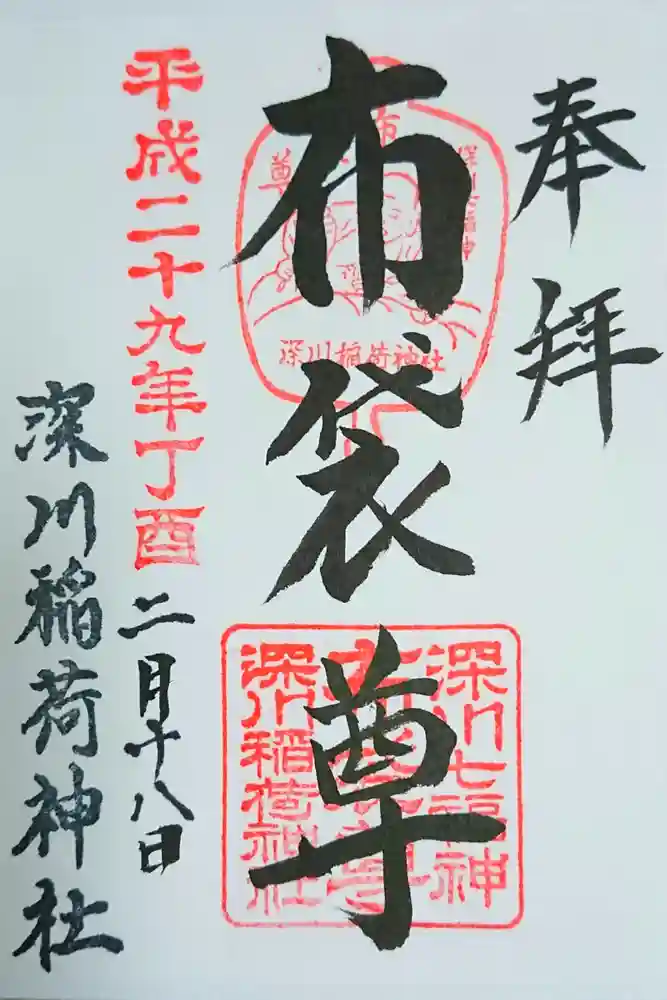 奉拝
布袋尊
布
尊
深川七福神
深川稲荷神社
深川七福神
布袋尊
深川稲荷神社
平成二十九年丁酉
二月十八日
深川稲荷神社